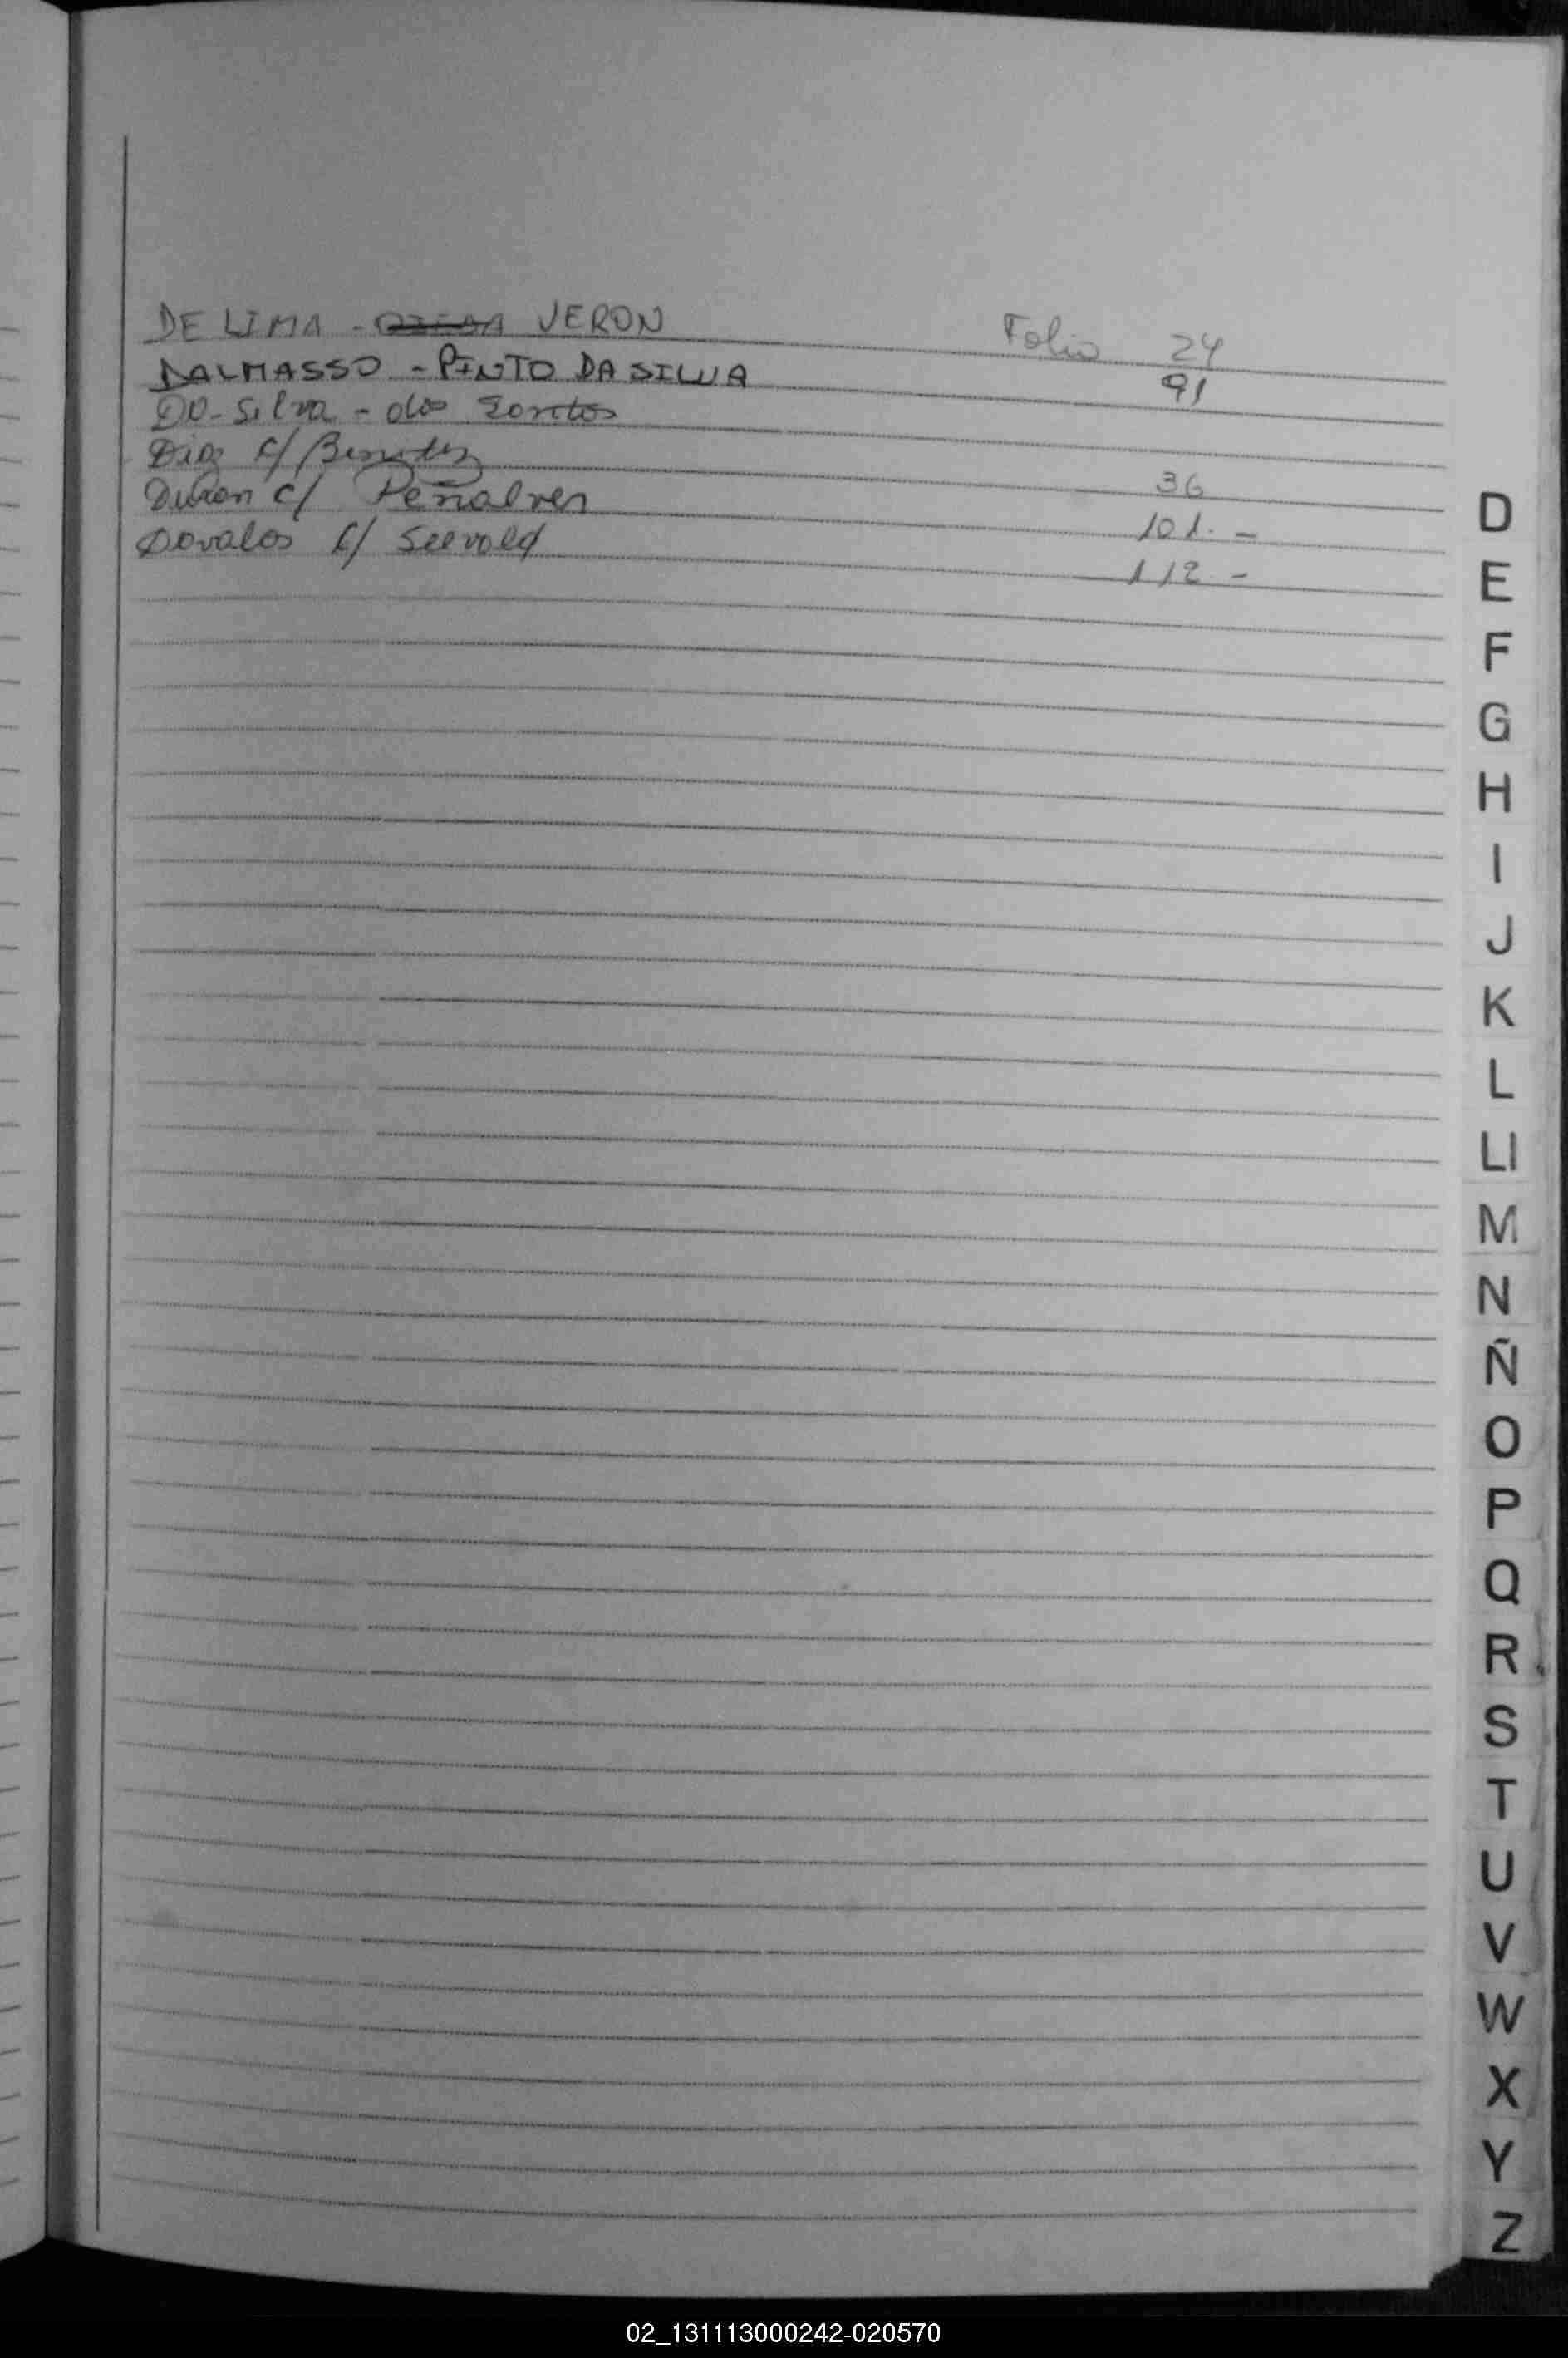 DE LIMA - VERON Folio 24
DALMASSO - PINTO DA SILVA 91
Da Silva - dos Santos
Diaz c/ Benitez 36
Duran c/ Peñalver 101.-
Dovalos c/ Seevold 112.-
D
E
F
G
H
I
J
K
L
Ll
M
N
Ñ
O
P
Q
R
S
T
U
V
W
X
Y
Z
02_131113000242-020570